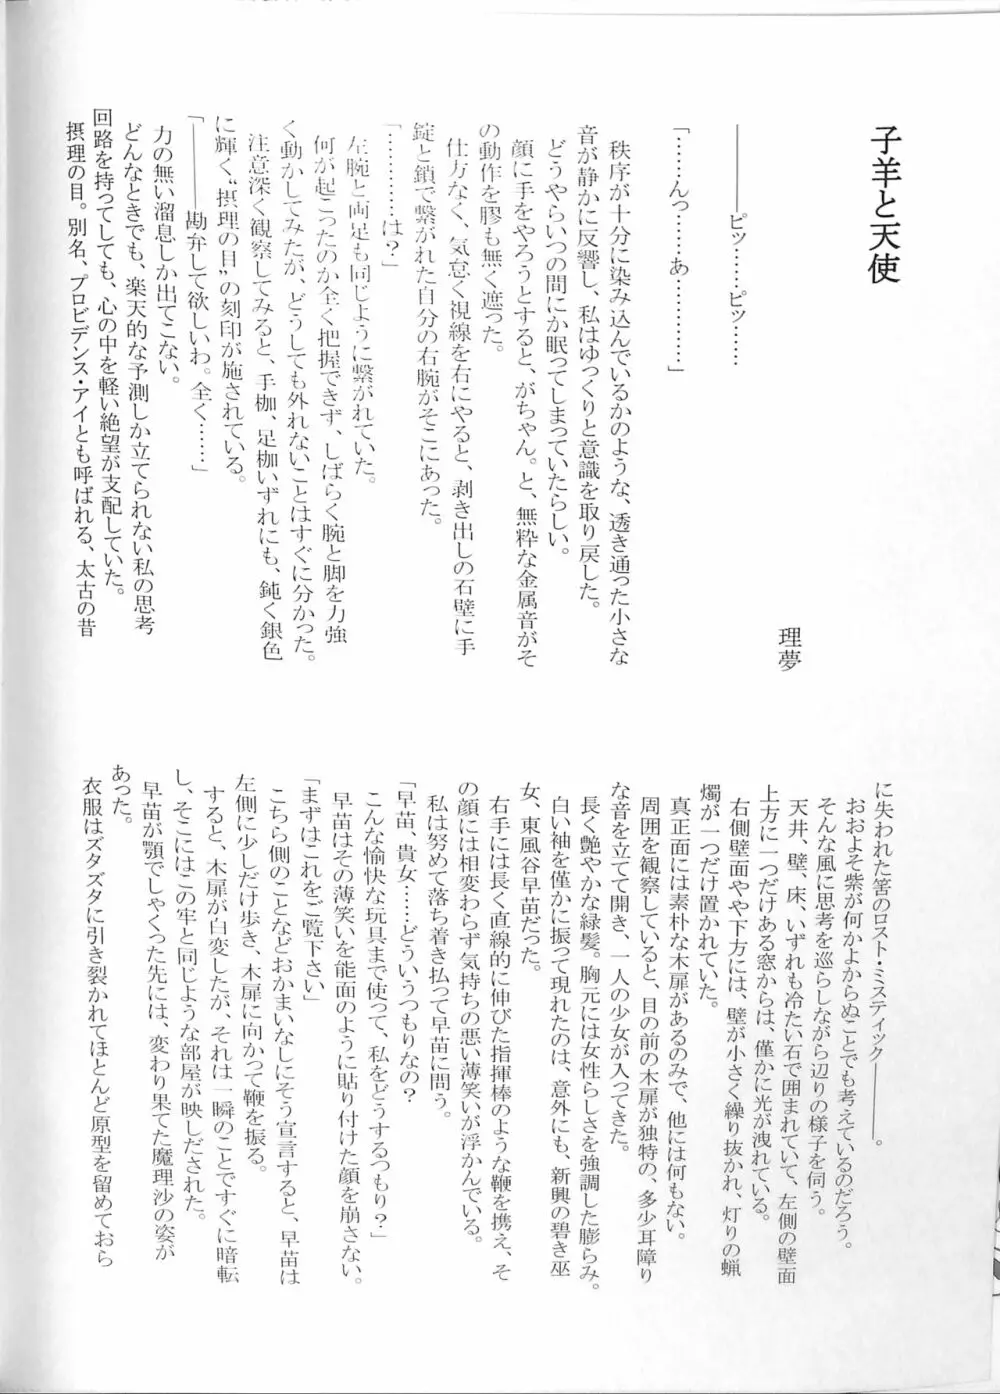 子羊と天使
理夢
――――ピッ……ピッ………
「……んっ……あ…………」
秩序が十分に染み込んでいるかのような、透き通った小さな
音が静かに反響し、私はゆっくりと意識を取り戻した。
どうやらいつの間にか眠ってしまっていたらしい。
顔に手をやろうとすると、がちゃん。と、無粋な金属音がそ
の動作を膠も無く遮った。
仕方なく、気怠く視線を右にやると、剥き出しの石壁に手
錠と鎖で繋がれた自分の右腕がそこにあった。
「…………は?」
左腕と両足も同じように繋がれていた。
何が起こったのか全く把握できず、しばらく腕と脚を力強
く動かしてみたが、どうしても外れないことはすぐに分かった。
注意深く観察してみると、手枷、足枷いずれにも、鈍く銀色
に輝く〝摂理の目〟の刻印が施されている。
「――――勘弁して欲しいわ。全く……」
力の無い溜息しか出てこない。
どんなときでも、楽天的な予測しか立てられない私の思考
回路を持ってしても、心の中を軽い絶望が支配していた。
摂理の目。別名、プロビデンス・アイとも呼ばれる、太古の昔
に失われた筈のロスト・ミスティック――――。
おおよそ紫が何かよからぬことでも考えているのだろう。
そんな風に思考を巡らしながら辺りの様子を伺う。
天井、壁、床、いずれも冷たい石で囲まれていて、左側の壁面
上方に一つだけある窓からは、僅かに光が洩れている。
右側壁面やや下方には、壁が小さく繰り抜かれ、灯りの蝋
燭が一つだけ置かれていた。
真正面には素朴な木扉があるのみで、他には何もない。
周囲を観察していると、目の前の木扉が独特の、多少耳障り
な音を立てて開き、一人の少女が入ってきた。
長く艶やかな緑髪。胸元には女性らしさを強調した膨らみ。
白い袖を僅かに振って現れたのは、意外にも、新興の碧き巫
女、東風谷早苗だった。
右手には長く直線的に伸びた指揮棒のような鞭を携え、そ
の顔には相変わらず気持ちの悪い薄笑いが浮かんでいる。
私は努めて落ち着き払って早苗に問う。
「早苗、貴女……どういうつもりなの?
こんな愉快な玩具まで使って、私をどうするつもり?」
早苗はその薄笑いを能面のように貼り付けた顔を崩さない。
「まずはこれをご覧下さい」
こちら側のことなどおかまいなしにそう宣言すると、早苗は
左側に少しだけ歩き、木扉に向かって鞭を振る。
すると、木扉が白変したが、それは一瞬のことですぐに暗転
し、そこにはこの牢と同じような部屋が映しだされた。
早苗が顎でしゃくった先には、変わり果てた魔理沙の姿が
あった。
衣服はズタズタに引き裂かれてほとんど原型を留めておら